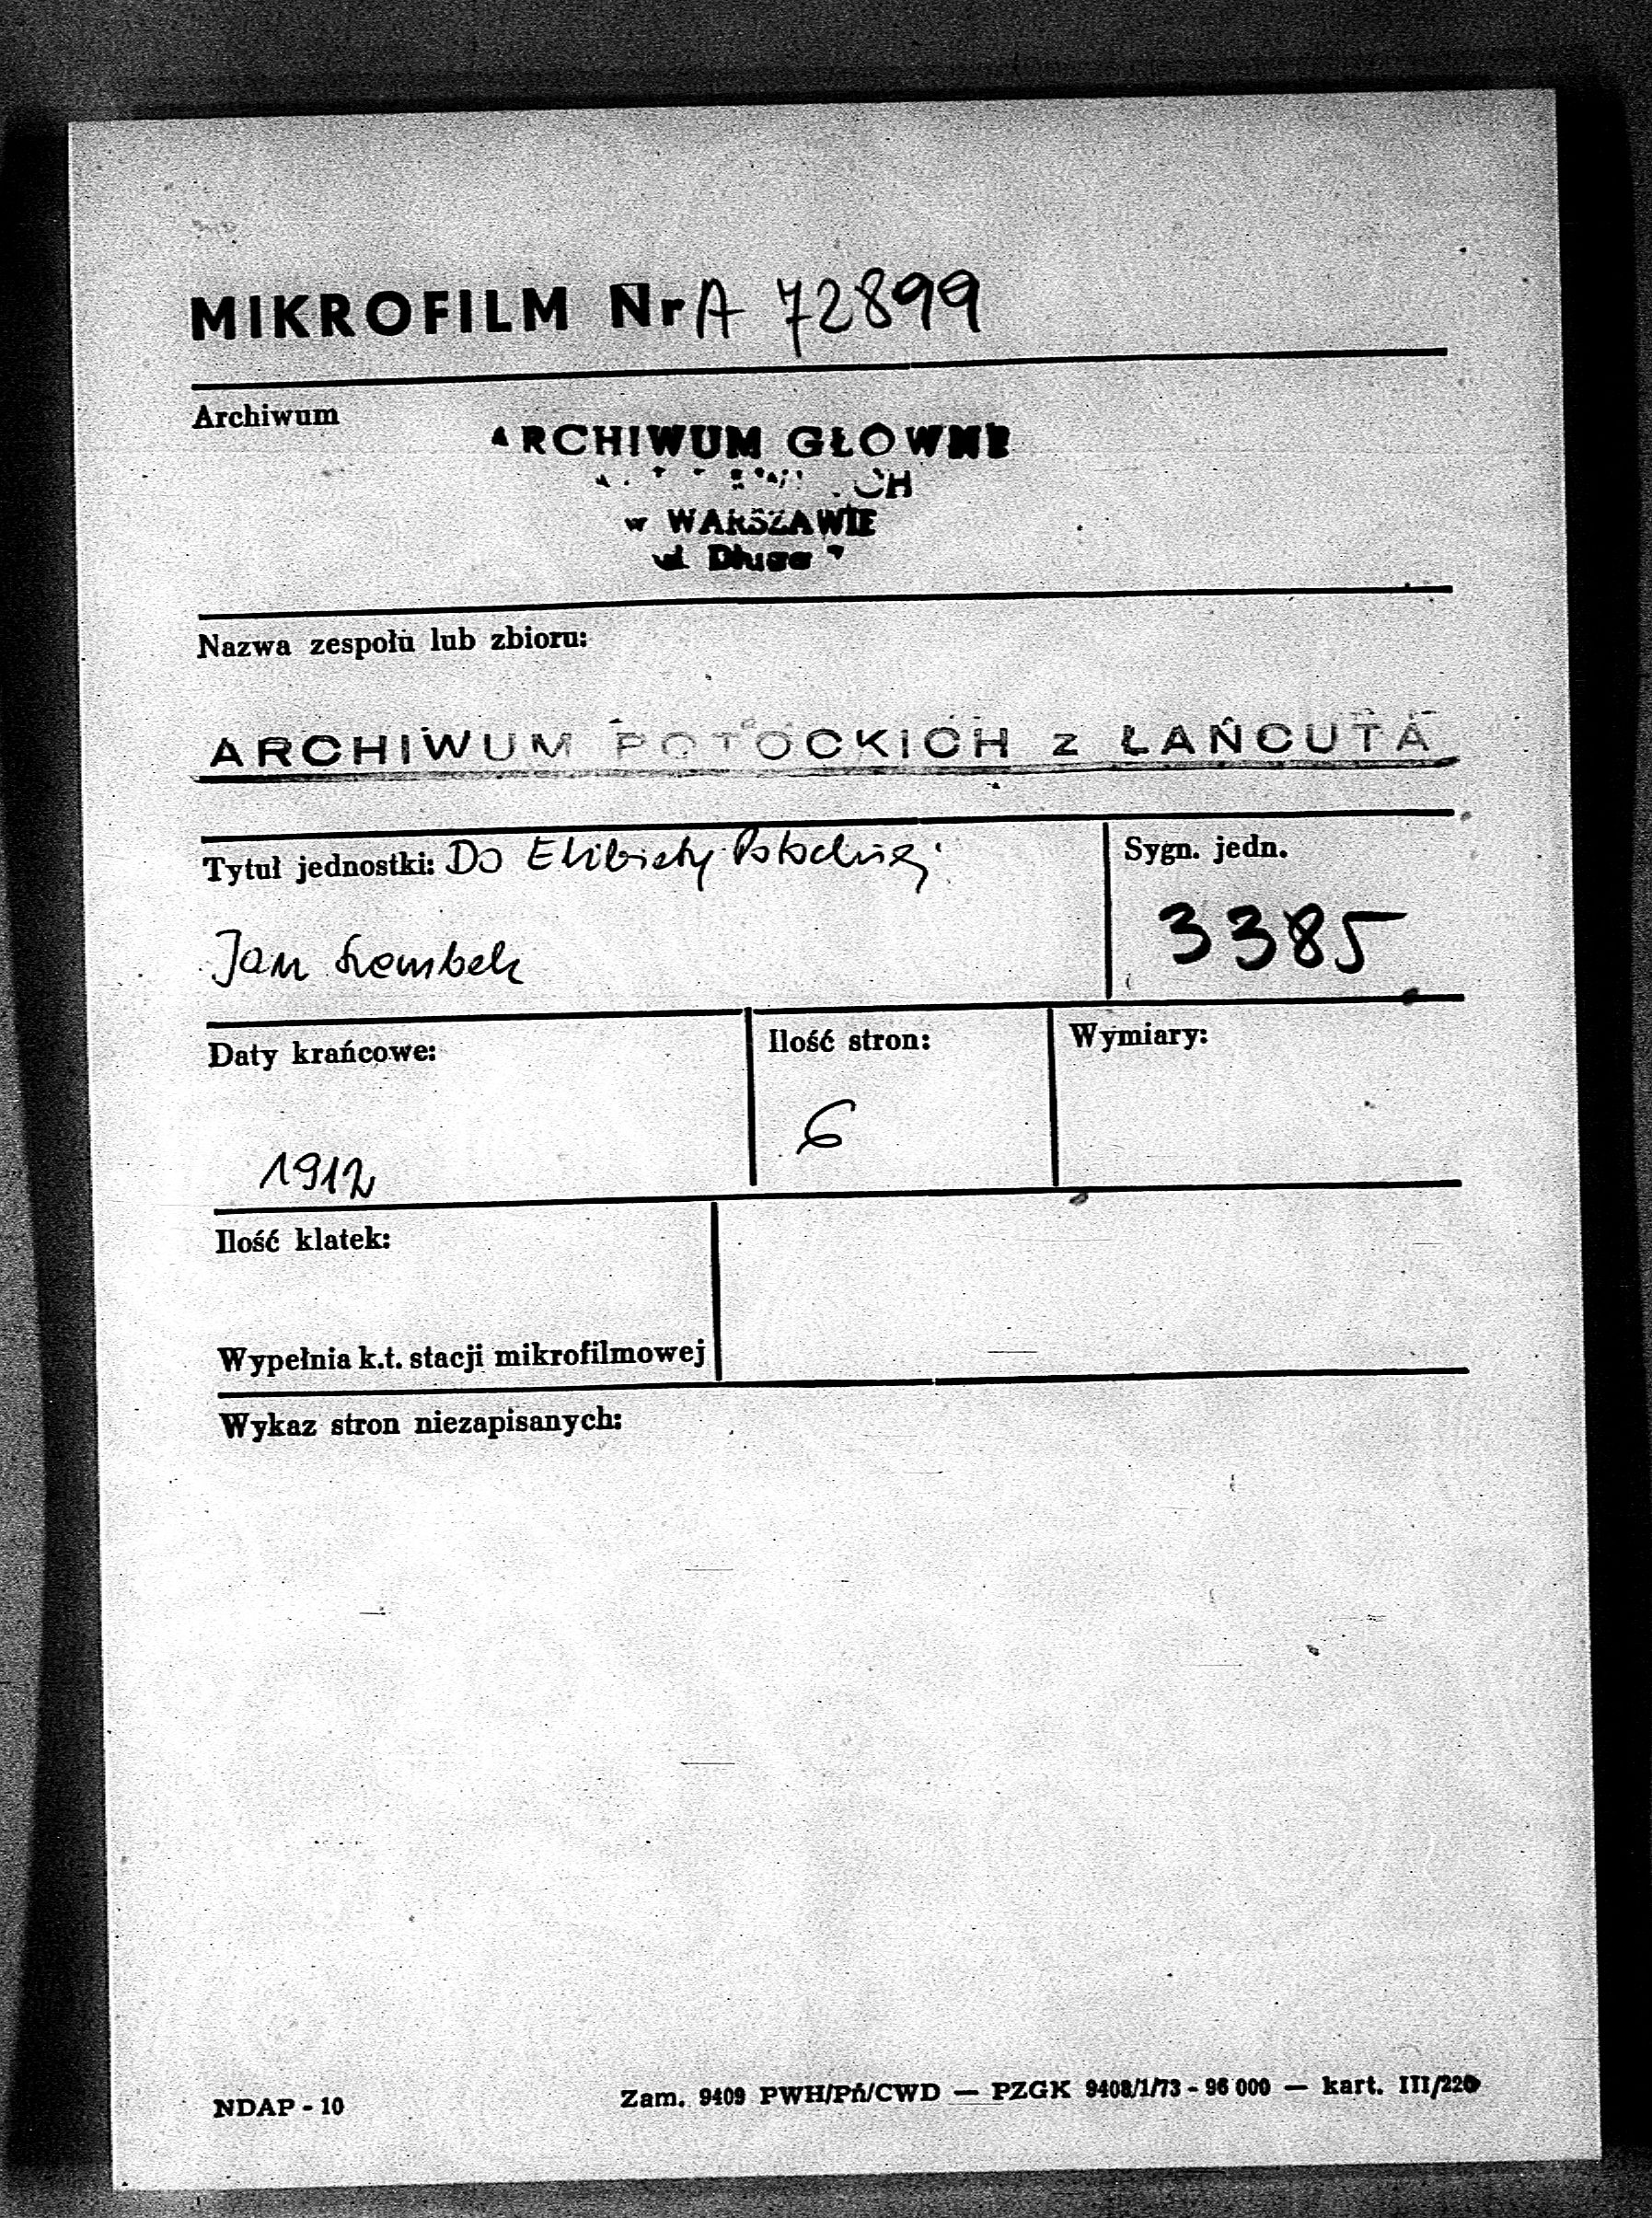 MIKROFILM Nr A 72899
Archiwum
ARCHIWUM GŁÓWNE
w WARSZAWIE
ul. Długa 7
Nazwa zespołu lub zbioru:
ARCHIWUM POTOCKICH z ŁAŃCUTA
Tytuł jednostki: Do Elżbiety Potockiej
Sygn. jedn.
3385
Jan Szembek
Daty krańcowe:
Ilość stron:
Wymiary:
6
1912
Ilość klatek:
Wypełnia k.t. stacji mikrofilmowej
Wykaz stron niezapisanych:
NDAP - 10
Zam. 9409 PWH/Pń/CWD — PZGK 9408/1/73 - 96 000 — kart. III/220